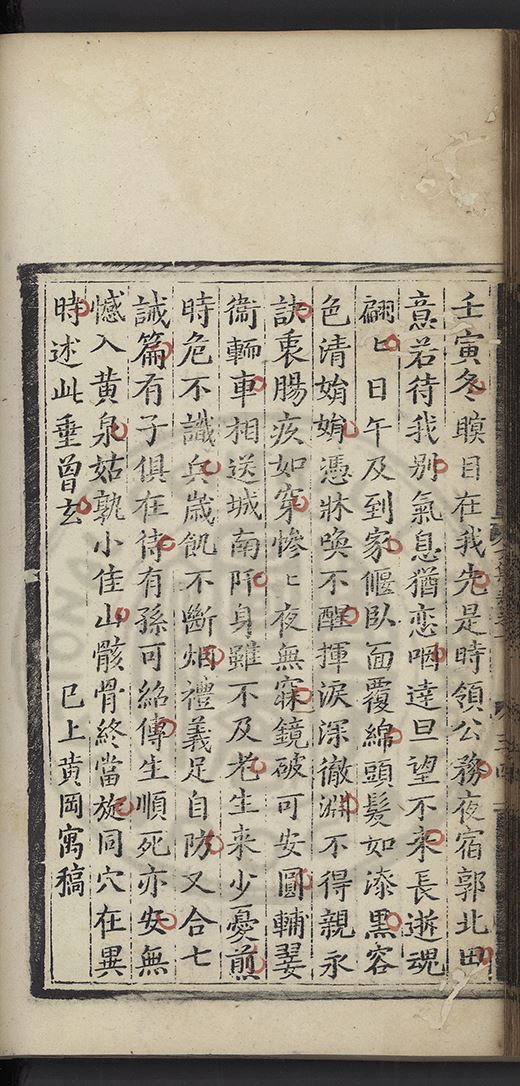 壬寅冬瞑目在我先是時領公務夜宿郭北田
意若待我別氣息猶恋咽達旦望不来長逝魂
翩〻日午及到家偃臥面覆綿頭髮如漆黒容
色清娟娟憑牀喚不醒揮淚深徹淵不得親永
訣裏腸疚如穿惨〻夜無寐鏡破可安圓輔翣
衞輀車相送城南阡身雖不及老生来少憂煎
時危不識兵歲飢不斷烟禮義足自防又合七
誡篇有子俱在待有孫可紹傳生順死亦安無
憾入黄泉姑孰小佳山骸骨終當旋同穴在異
時述此垂曽玄　　　已上黄岡寓稿